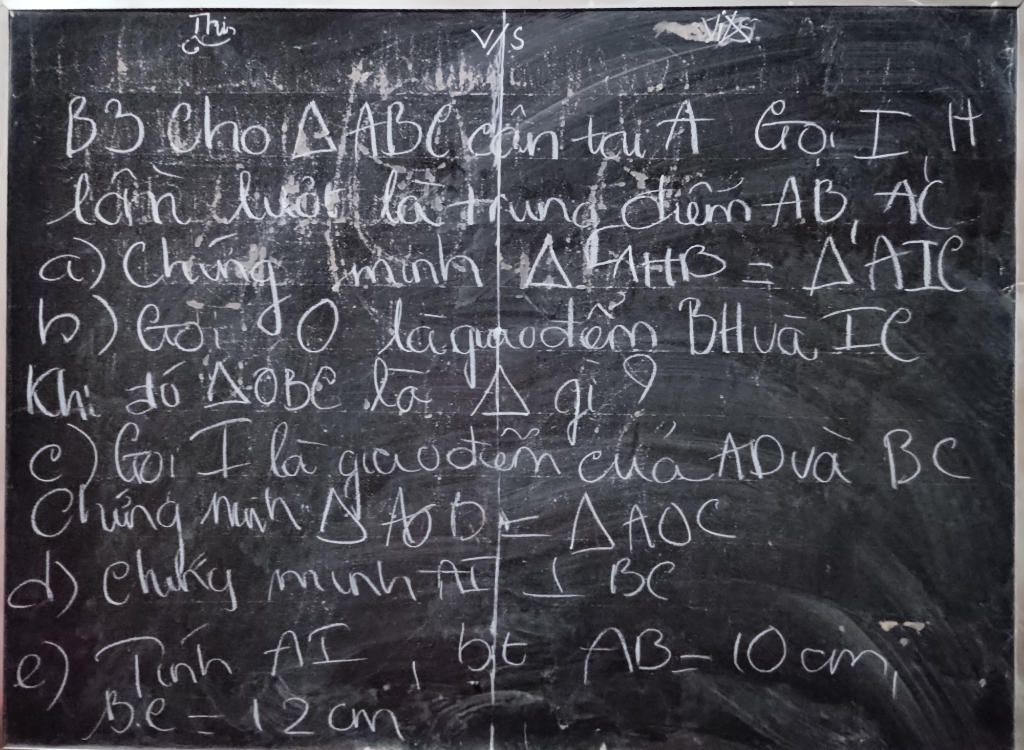 Thi
V/S
B3 Cho Δ ABC cân tại A Gọi I, H
lần lượt là trung điểm AB, AC
a) Chứng minh Δ AHB = Δ AIC
b) Gọi O là giao điểm BH và IC
Khi đó ΔOBC là Δ gì?
c) Gọi I là giao điểm của AD và BC
Chứng minh Δ AOB = Δ AOC
d) Chứng minh AI ⊥ BC
e) Tính AI, bt AB = 10 cm,
BC = 12 cm